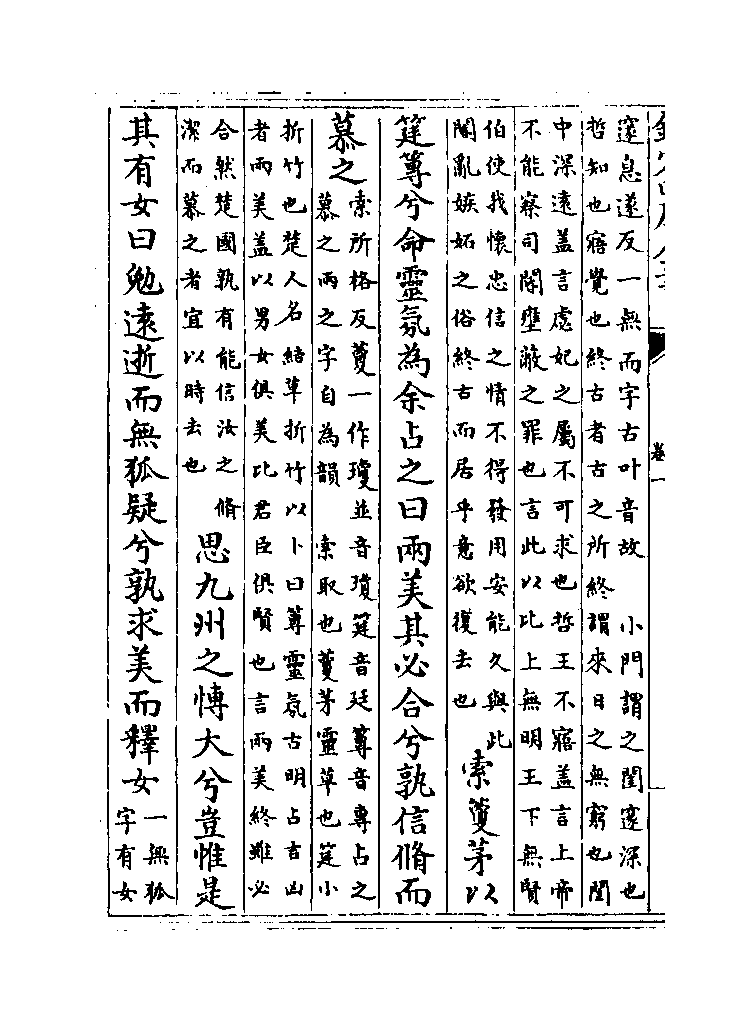 欽定四庫全書
卷一
邃息遂反一無而字古叶音故　小門謂之閨邃深也
哲知也寤覺也終古者古之所終謂來日之無窮也閨
中深遠盖言處妃之屬不可求也哲王不寤盖言上帝
不能察司閽壅蔽之罪也言此以比上無明王下無賢
伯使我懷忠信之情不得發用安能久與此
闇亂嫉妬之俗終古而居乎意欲復去也
索藑茅以
筳篿兮命靈氛為余占之曰兩美其必合兮孰信脩而
慕之
索所格反藑一作瓊並音瓊筳音廷篿音專占之
慕之兩之字自為韻　索取也藑茅靈草也筳小
折竹也楚人名結草折竹以卜曰篿靈氛古明占吉凶
者兩美盖以男女俱美比君臣俱賢也言兩美終雖必
合然楚國孰有能信汝之脩
潔而慕之者宜以時去也
思九州之博大兮豈惟是
其有女曰勉遠逝而無狐疑兮孰求美而釋女
一無狐
字有女